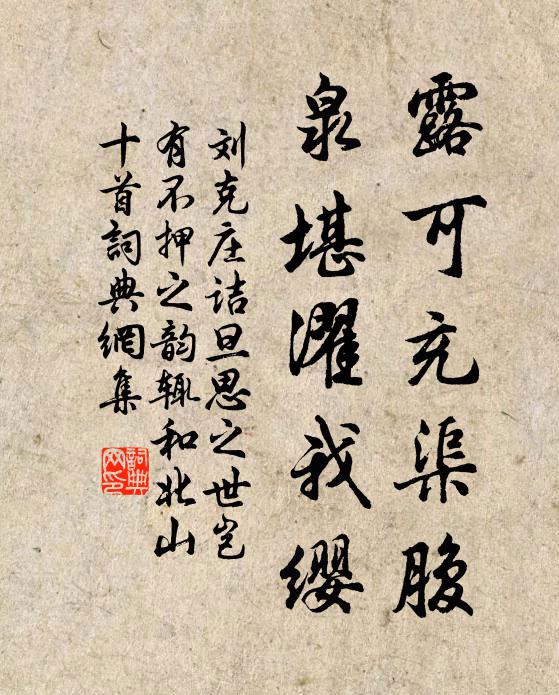 露可充渠腹
泉堪濯我缨
刘克庄诘旦思之世岂
有不押之韵辄和北山
十首詞典網集
詞典网印